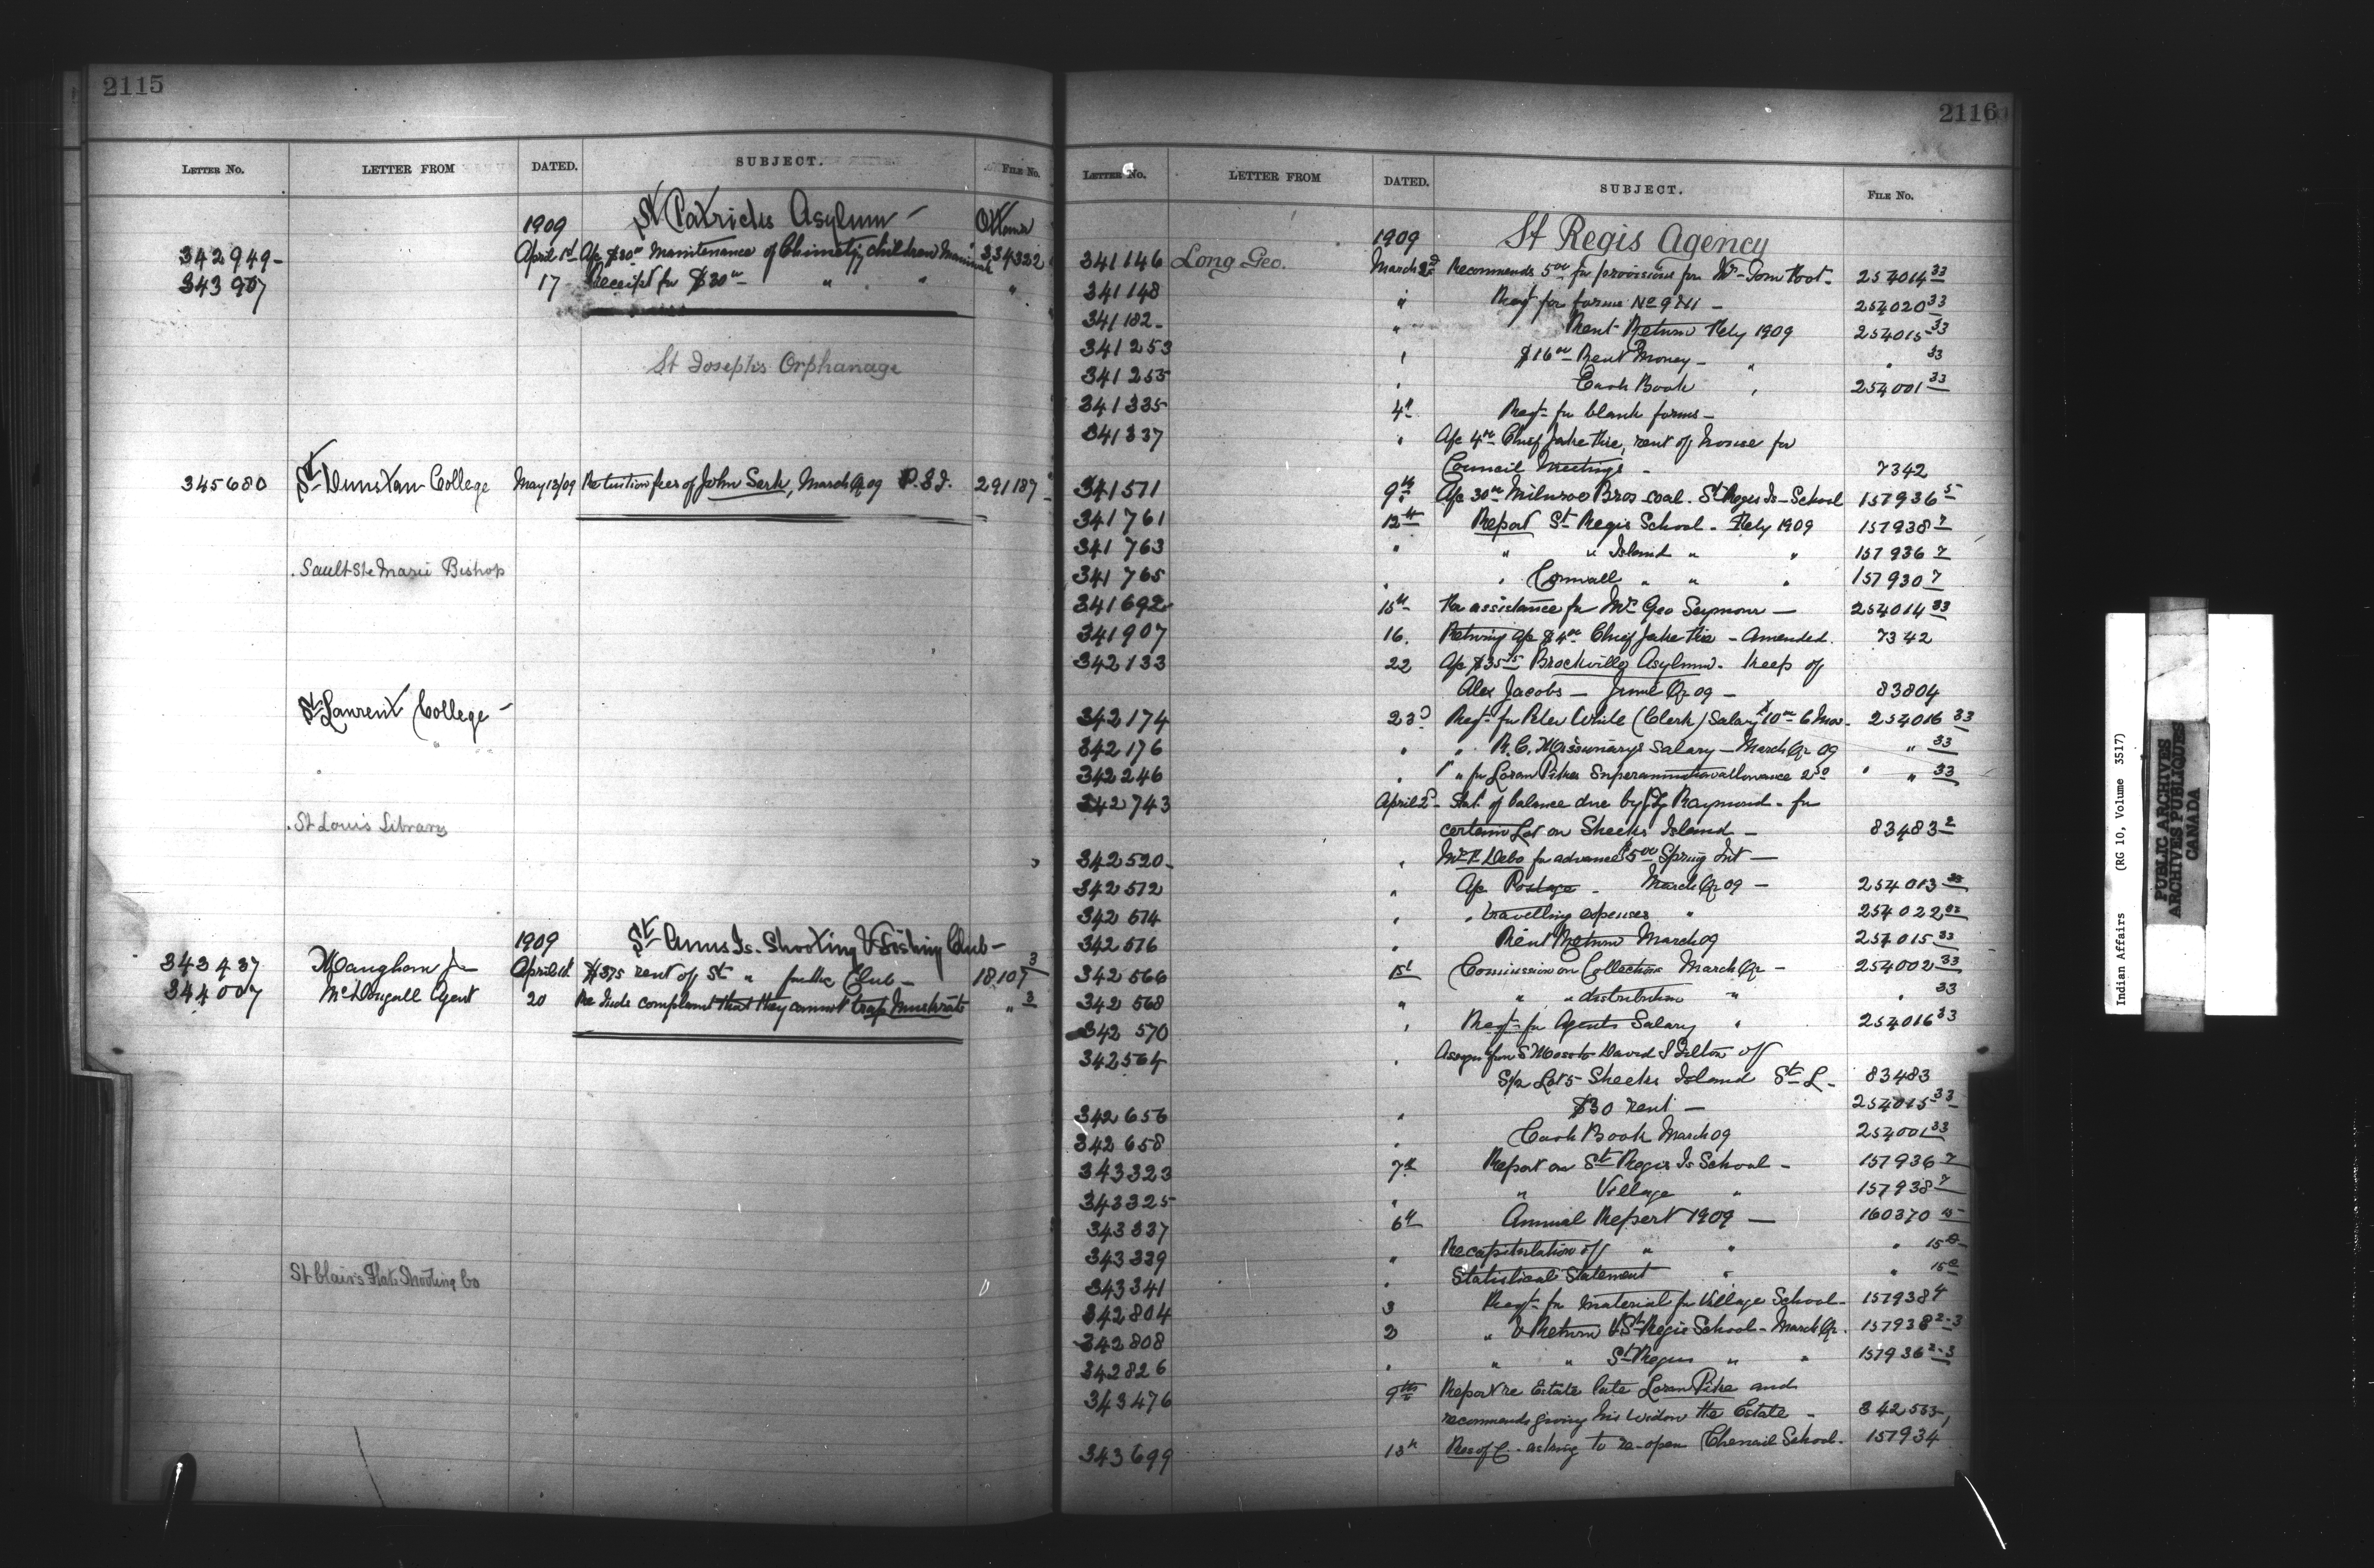 2115
LETTER No. LETTER FROM DATED. SUBJECT. FILE No.
1909 St Patricks Asylum - Ottawa
342949- April 1st A/c $30 00 Maintenance of children 334332
343907 17 Receipt for $30 00 " " "
St Joseph's Orphanage
345680 St Dunstan College May 13/09 Re tuition fees of John Sark, March Qr 09 P.E.I. 291187
Sault Ste Marie Bishop
St Laurent College -
St Louis Library
1909 St Anns Is. Shooting & Fishing Club -
343437 Maugham Jn April 1st $375 rent of St " for the Club - 18,107 3
344007 McDougall Agent 20 Re Inds complaint that they cannot trap Muskrats " 3
St Clair's Flats Shooting Co
2116
LETTER No. LETTER FROM DATED. SUBJECT. FILE No.
1909 St Regis Agency
341146 Long Geo. March 2d Recommends 5 00 for provisions for Wm Tom Root - 254014 33
341148 " Reqt for forms No 9 & 11 - 254020 33
341182- " Rent Return Feby 1909 254015 33
341253 " $16 00 Rent Money - " " 33
341255 " Cash Book " 254001 33
341335 4th Reqt for blank forms -
341337 " A/c 4 00 Chief Jake Fire, rent of house for
Council Meetings - 7342
341571 9th A/c 30 00 Milnroe Bros coal. St Regis Is - School 157936 5
341761 12th Report St Regis School - Feby 1909 157938 7
341763 " " " Island " " 157936 7
341765 " " Cornwall " " " 157930 7
341692 15th Re assistance for Mrs Geo Seymour - 254014 33
341907 16. Returning A/c $4 00 Chief Jake Fire - Amended. 7342
342133 22 A/c $35 75 Brockville Asylum - keep of
Alex Jacobs - June Qr 09 - 83804
342174 23d Reqt for Peter White (Clerk) Salary $10 00 6 Mos. 254016 33
342176 " " R.C. Missionary's Salary - March Qr 09 " 33
342246 " " for Loran Pikes Superannuation allowance 2 50 " " 33
342743 April 2d - Stat. of balance due by Raymond - for
certain Lot on Sheeks Island - 83483 2
342520- " Mr P. Debo for advance $5 00 Spring Int -
342572 " A/c Postage - March Qr 09 - 254013 33
342574 " " travelling expenses " 254022 02
342576 " Rent Return March 09 254015 33
342566 1st Commission on Collections March Qr - 254002 33
342568 " " " distribution " " 33
342570 " Reqt for Agents Salary " 254016 33
342564 " Assgn from S Moss to David S Tilton of
S/2 Lot 5 Sheeks Island St L - 83483
342656 " $30 rent - 254015 33
342658 " Cash Book March 09 254001 33
343323 7th Report on St Regis Is School - 157936 7
343325 " " Village " 157938 7
343337 6th Annual Report 1909 - 160370 15
343339 " Recapitulation of " " " 15 B
343341 " Statistical Statement " " 15 C
342804 3 Reqt for material for Village School - 157938 4
342808 2 " & Return St Regis School - March Qr. 157938 2-3
342826 " " " St Regis " " 157936 2-3
343476 9th Report re Estate late Loran Pike and
recommends giving his widow the Estate - 342533
343699 13th Res of C. asking to re-open Chenail School - 157934
Indian Affairs (RG 10, Volume 3517)
PUBLIC ARCHIVES
ARCHIVES PUBLIQUES
CANADA